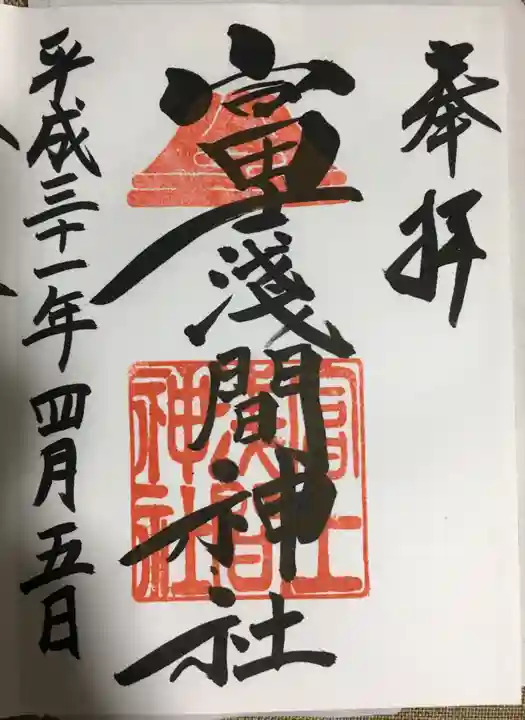 奉拝
富士浅間神社
富士浅間神社
平成三十一年四月五日